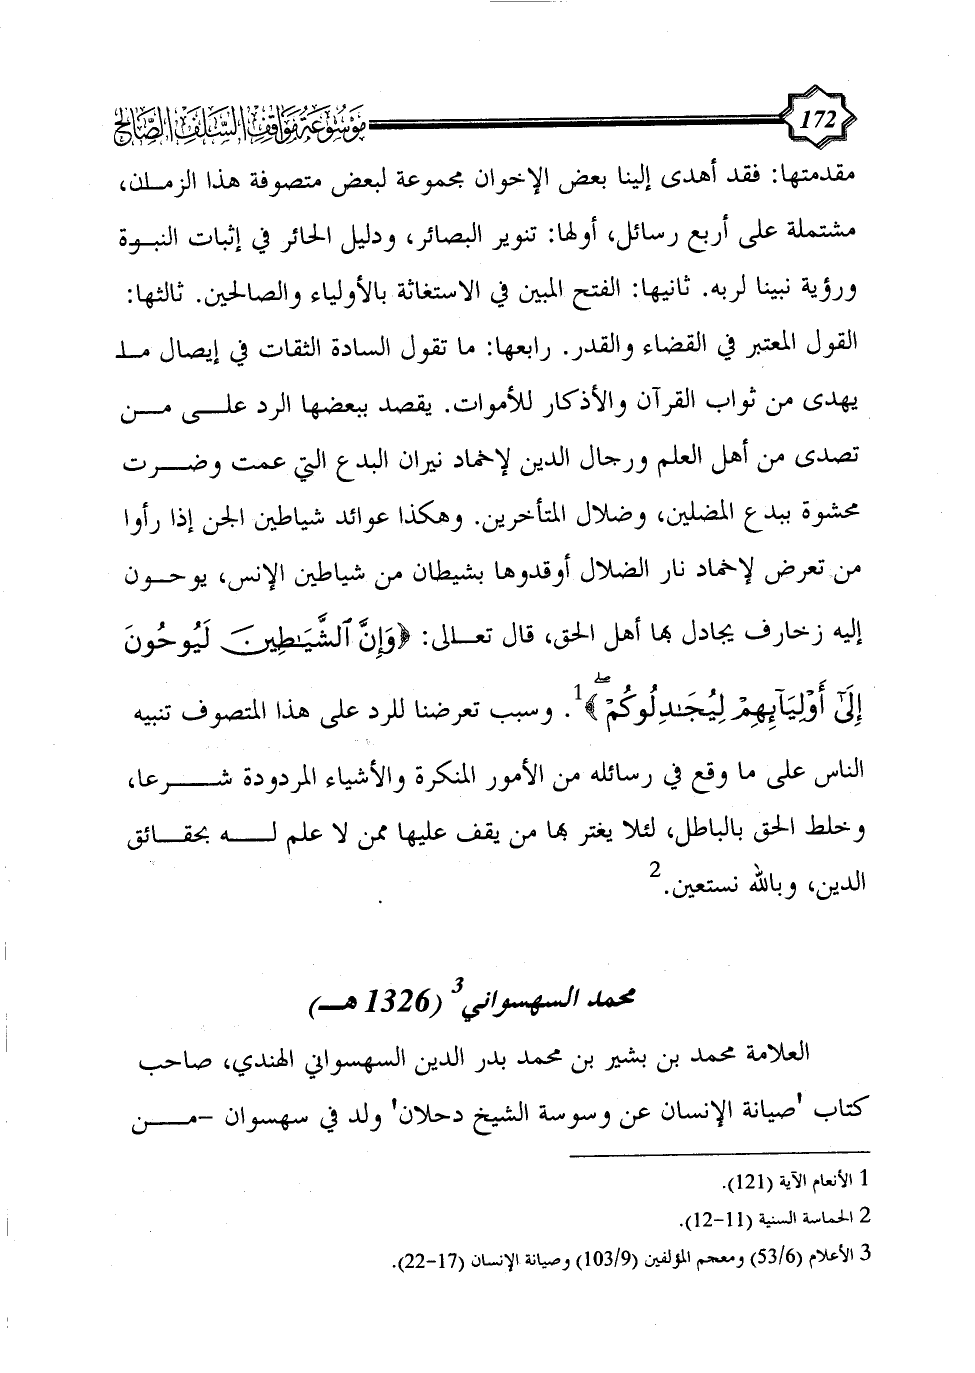 172
موسوعة مواقف السلف الصالح
مقدمتها: فقد أهدى إلينا بعض الإخوان مجموعة لبعض متصوفة هذا الزمان،
مشتملة على أربع رسائل، أولها: تنوير البصائر، ودليل الحائر في إثبات النبوة
ورؤية نبينا لربه. ثانيها: الفتح المبين في الاستغاثة بالأولياء والصالحين. ثالثها:
القول المعتبر في القضاء والقدر. رابعها: ما تقول السادة الثقات في إيصال ما
يهدى من ثواب القرآن والأذكار للأموات. يقصد ببعضها الرد على من
تصدى من أهل العلم ورجال الدين لإخماد نيران البدع التي عمت وضرت
محشوة ببدع المضلين، وضلال المتأخرين. وهكذا عوائد شياطين الجن إذا رأوا
من تعرض لإخماد نار الضلال أوقدوها بشيطان من شياطين الإنس، يوحون
إليه زخارف يجادل بها أهل الحق، قال تعالى: ﴿وَإِنَّ ٱلشَّيَـٰطِينَ لَيُوحُونَ
إِلَىٰٓ أَوْلِيَآئِهِمْ لِيُجَـٰدِلُوكُمْ ۖ﴾1. وسبب تعرضنا للرد على هذا المتصوف تنبيه
الناس على ما وقع في رسائله من الأمور المنكرة والأشياء المردودة شرعا،
وخلط الحق بالباطل، لئلا يغتر بها من يقف عليها ممن لا علم له بحقائق
الدين، وبالله نستعين.2
محمد السهسواني3 (1326 هـ)
العلامة محمد بن بشير بن محمد بدر الدين السهسواني الهندي، صاحب
كتاب 'صيانة الإنسان عن وسوسة الشيخ دحلان' ولد في سهسوان -من
1 الأنعام الآية (121).
2 الحماسة السنية (11-12).
3 الأعلام (53/6) ومعجم المؤلفين (103/9) وصيانة الإنسان (17-22).